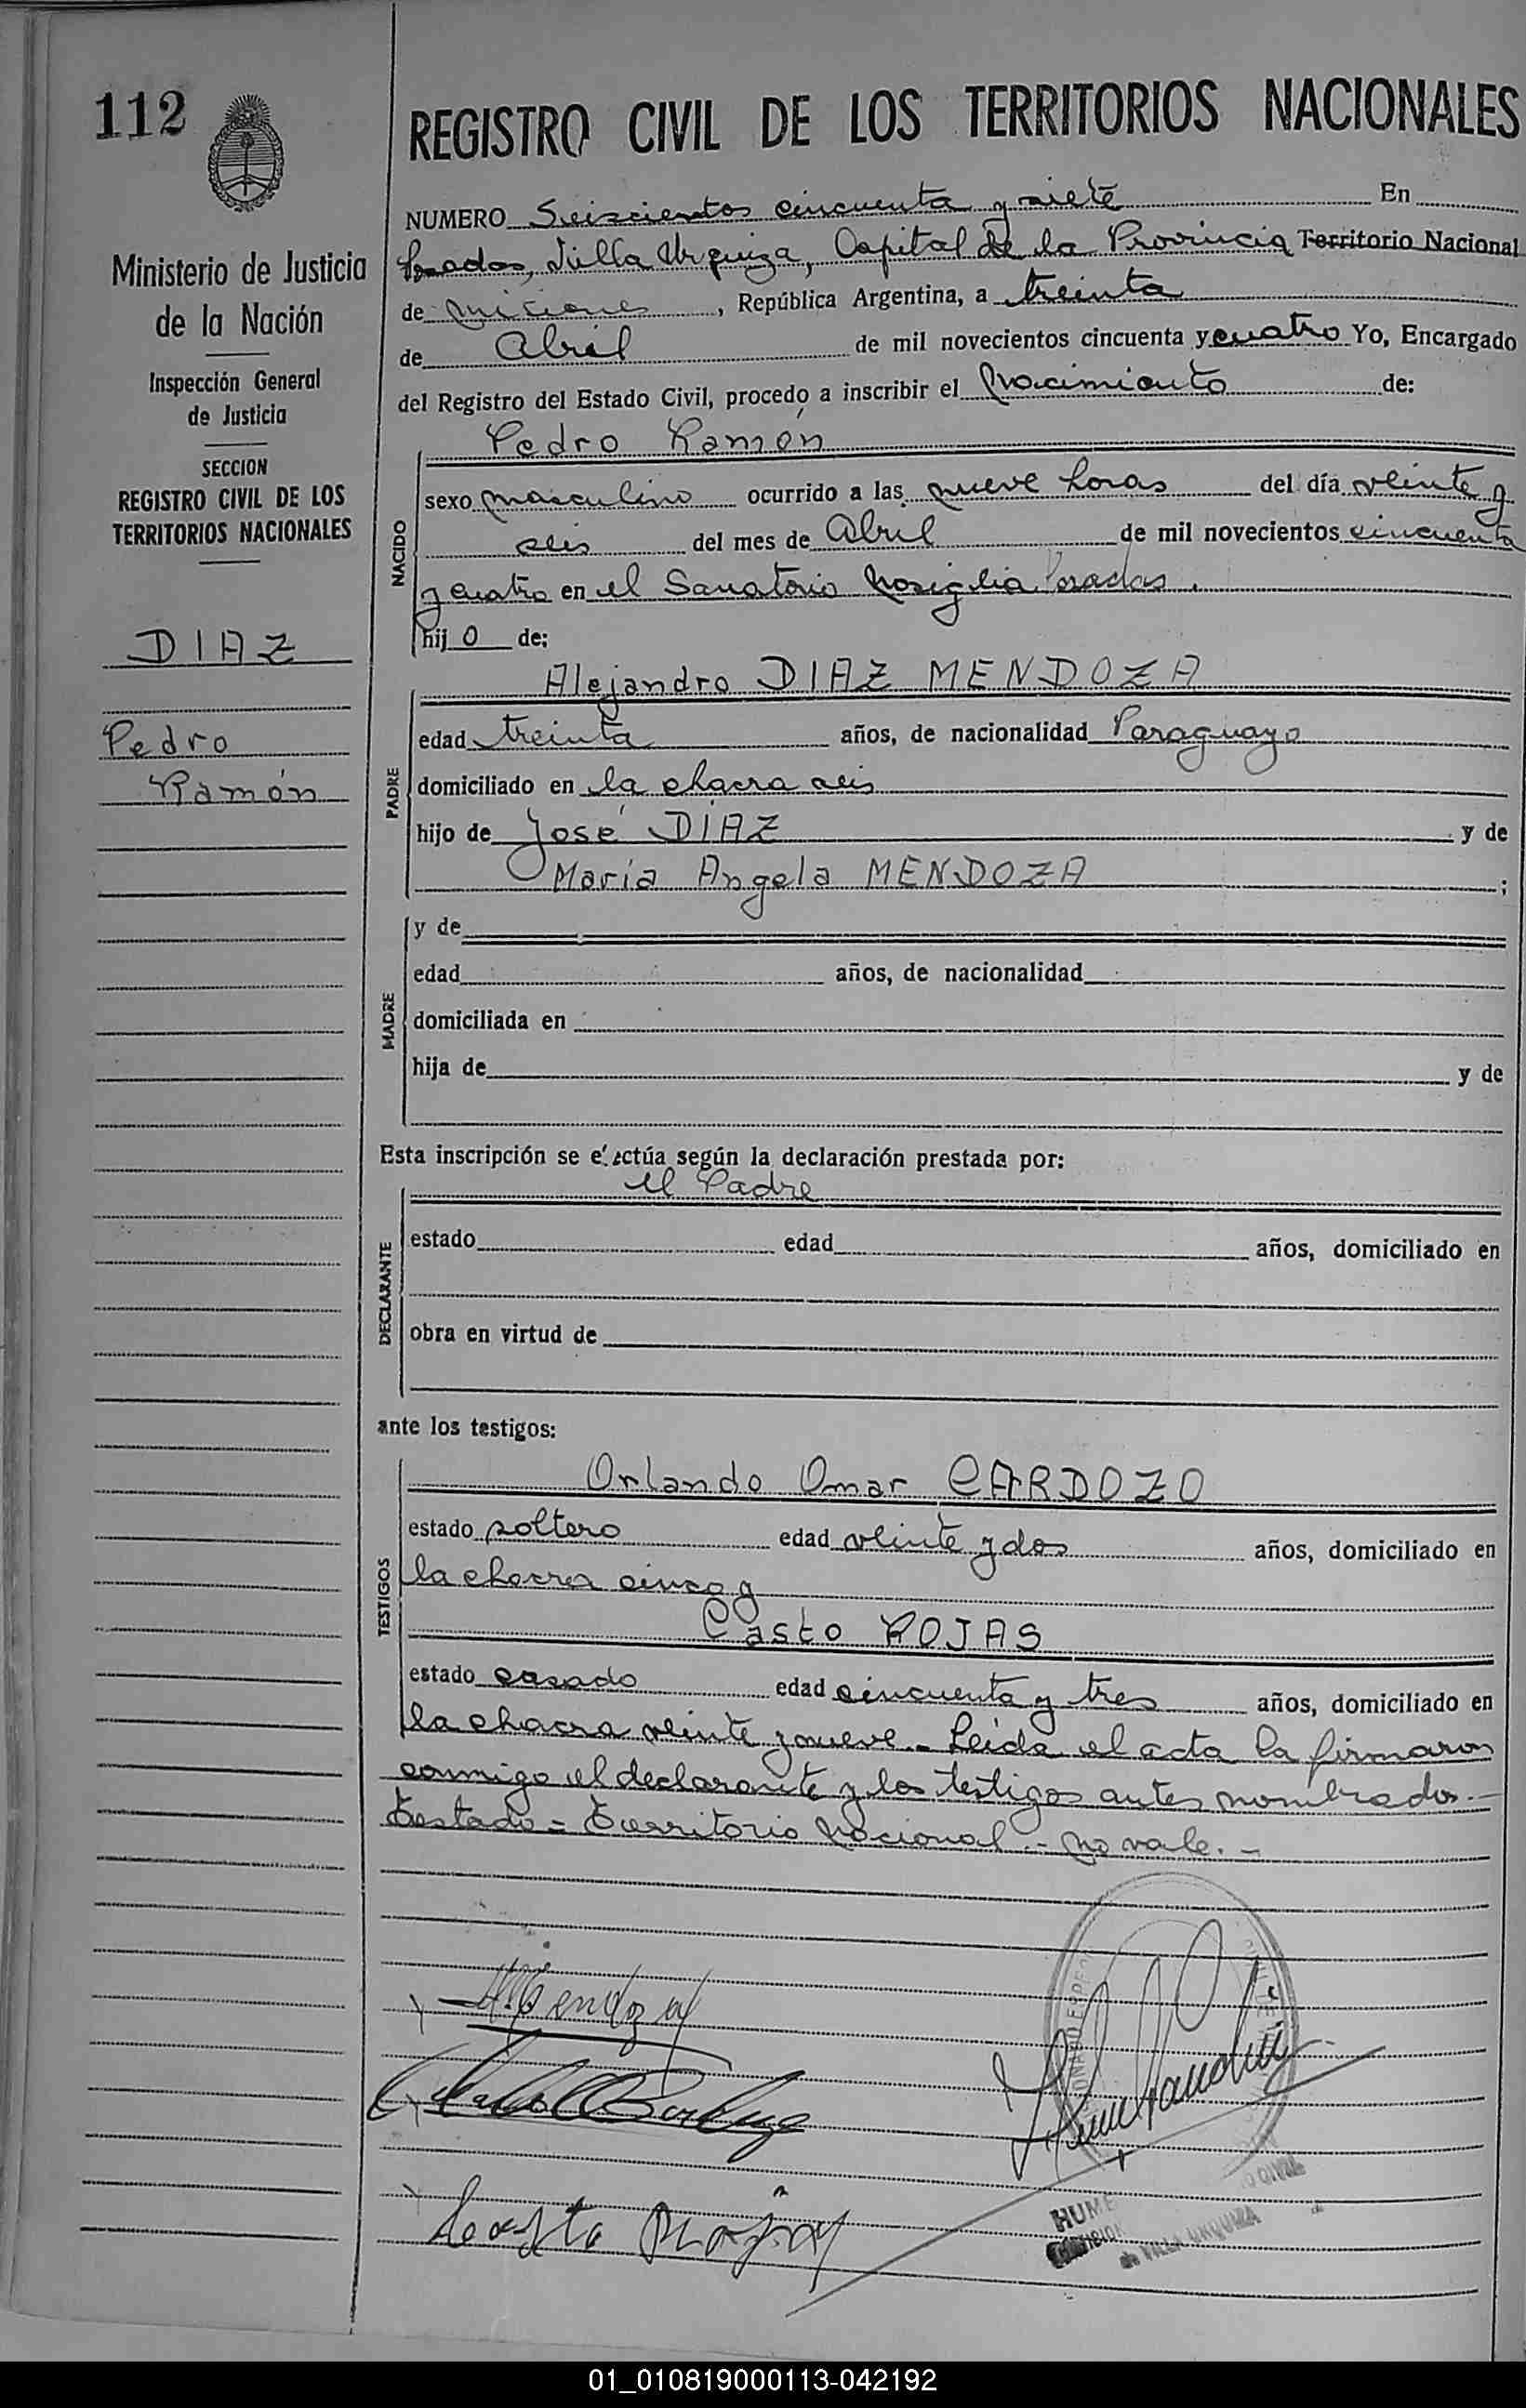 112
REGISTRO CIVIL DE LOS TERRITORIOS NACIONALES
Ministerio de Justicia
de la Nación
Inspección General
de Justicia
SECCION
REGISTRO CIVIL DE LOS
TERRITORIOS NACIONALES
DIAZ
Pedro
Ramón
NUMERO Seiscientos cincuenta y siete En
Posadas, Villa Urquiza, Capital de la Provincia Territorio Nacional
de Misiones, República Argentina, a treinta
de Abril de mil novecientos cincuenta y cuatro Yo, Encargado
del Registro del Estado Civil, procedo a inscribir el Nacimiento de:
NACIDO
Pedro Ramón
sexo masculino ocurrido a las nueve horas del día veinte y
seis del mes de Abril de mil novecientos cincuenta
y cuatro en el Sanatorio Nosiglia Posadas.
hijo de:
PADRE
Alejandro DIAZ MENDOZA
edad treinta años, de nacionalidad Paraguayo
domiciliado en la chacra seis
hijo de José DIAZ y de
María Angela MENDOZA;
MADRE
y de
edad años, de nacionalidad
domiciliada en
hija de y de
Esta inscripción se efectúa según la declaración prestada por:
DECLARANTE
el Padre
estado edad años, domiciliado en
obra en virtud de
ante los testigos:
TESTIGOS
Orlando Omar CARDOZO
estado soltero edad veinte y dos años, domiciliado en
la chacra cinco y
Casto ROJAS
estado casado edad cincuenta y tres años, domiciliado en
la chacra veinte y nueve.- Leida el acta la firmaron
conmigo el declarante y los testigos antes nombrados.-
Testado = Territorio Nacional.- no vale.-
Casto Rojas
de VILLA URQUIZA
01_010819000113-042192